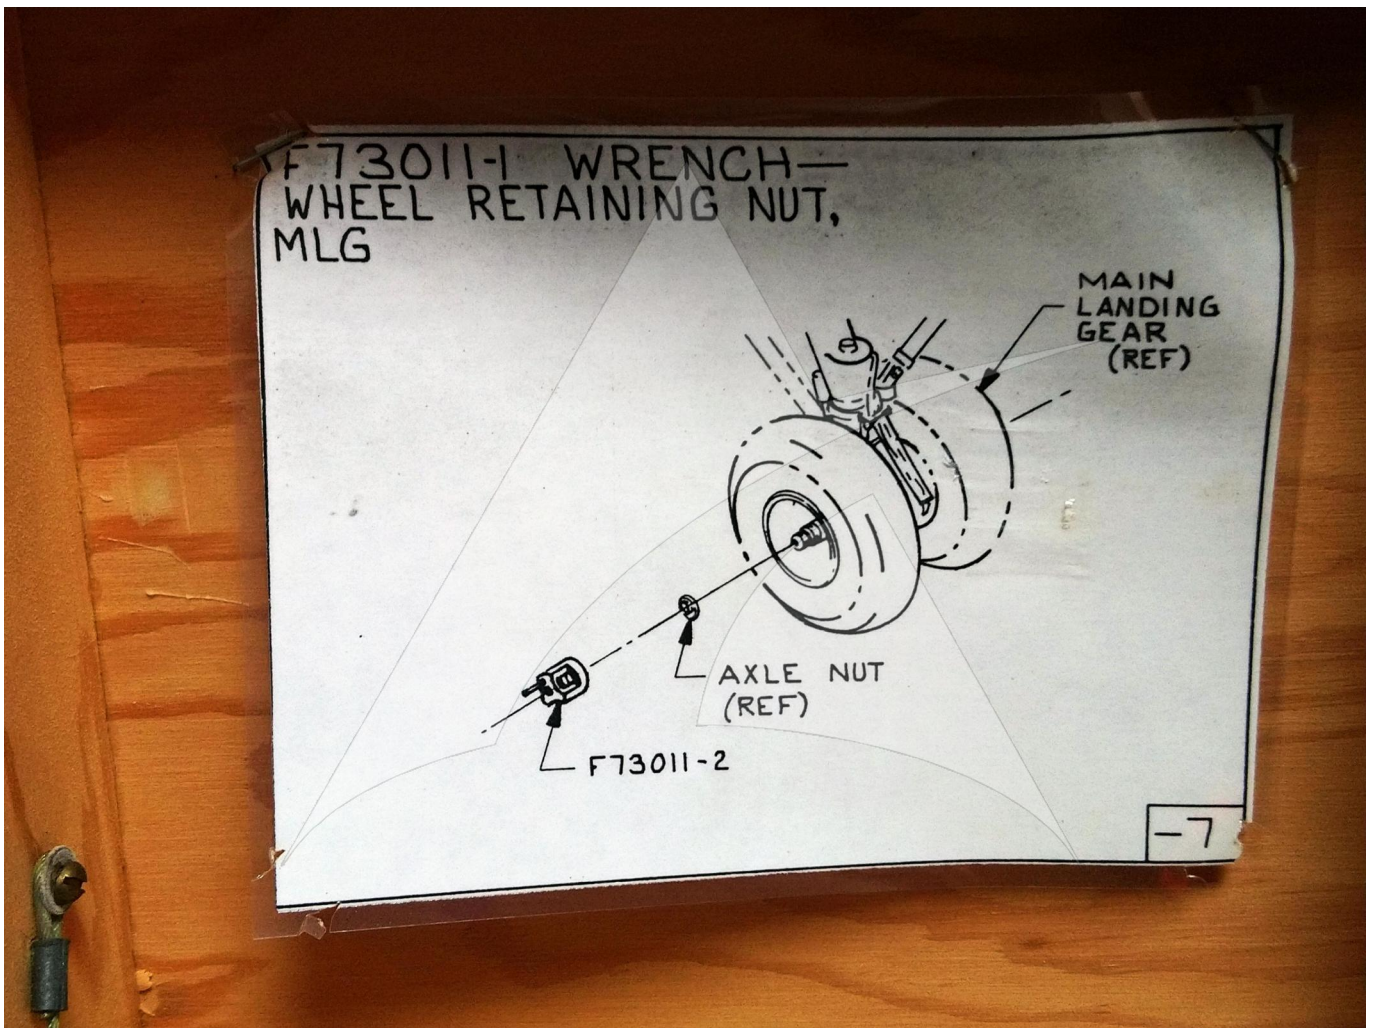 F73011-1 WRENCH—
WHEEL RETAINING NUT,
MLG
MAIN
LANDING
GEAR
(REF)
AXLE NUT
(REF)
F73011-2
-7